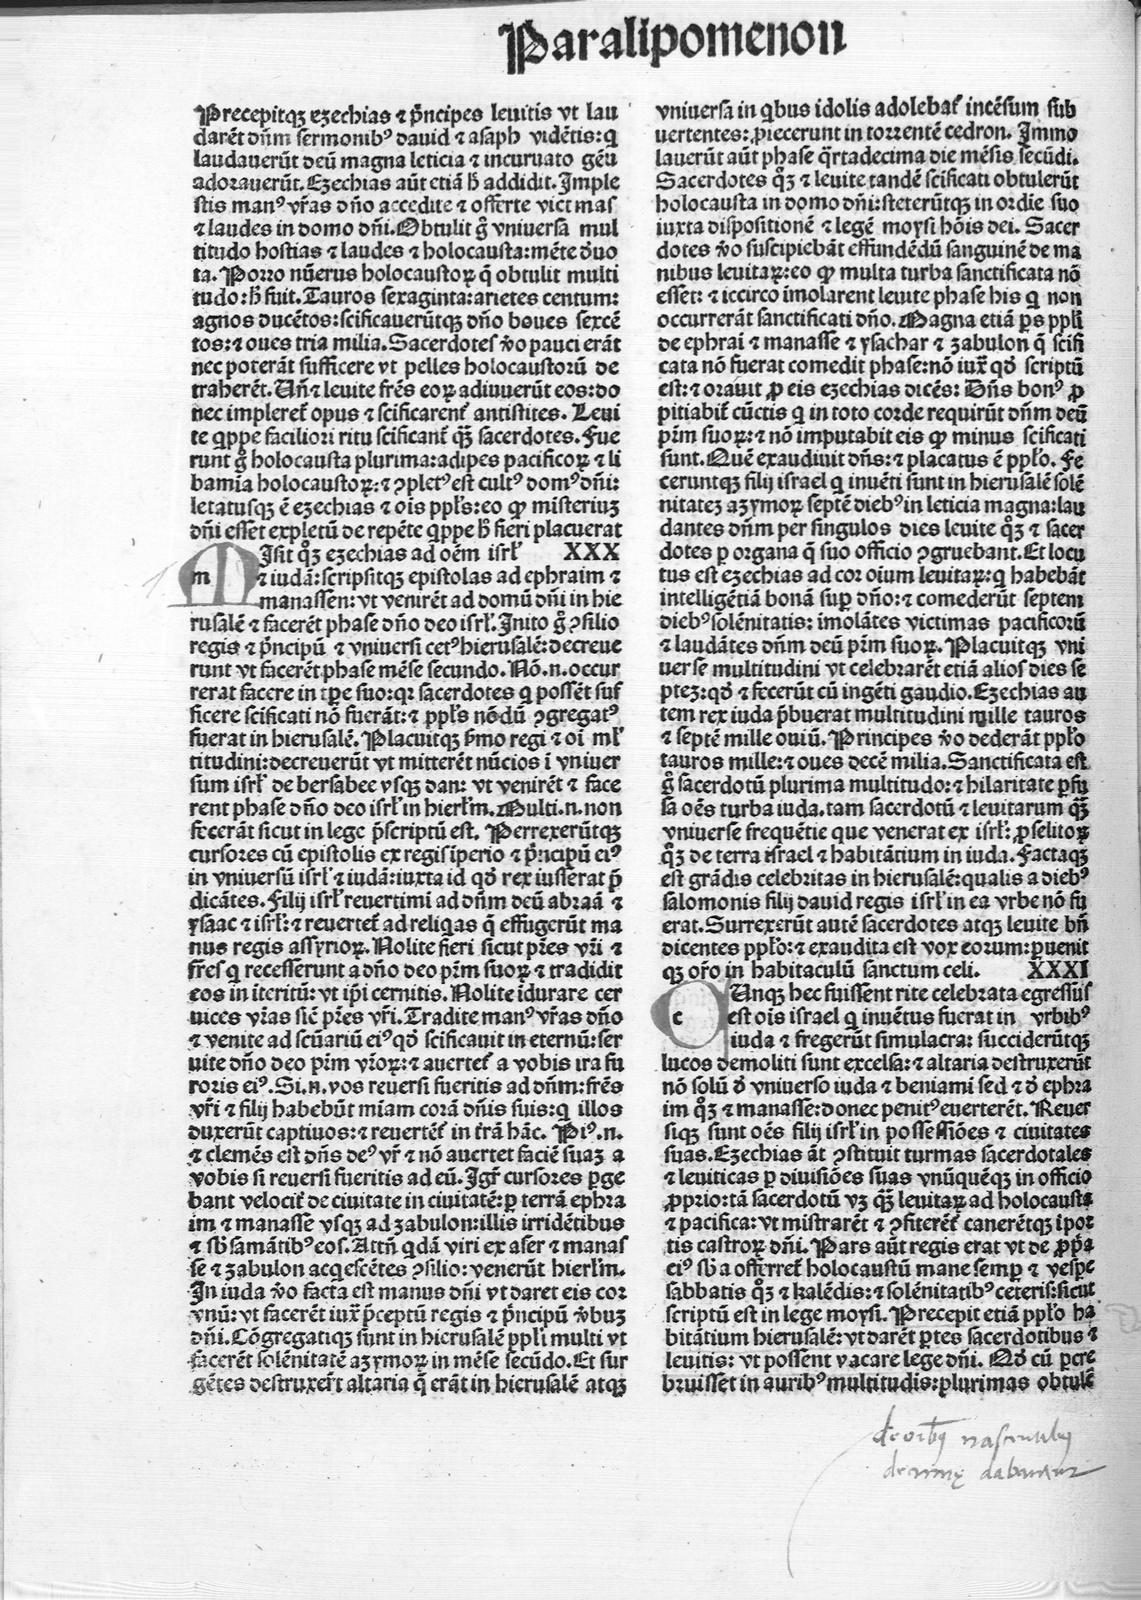 Paralipomenon
Precepitqꝫ ezechias ⁊ p̄ncipes leuitis vt lau
darēt dn̄m sermonibꝰ dauid ⁊ asaph vidētis: q
laudauerūt deū magna leticia ⁊ incuruato gēu
adorauerūt. Ezechias aūt etiā h̄ addidit. Imple
stis manꝰ vr̄as dn̄o accedite ⁊ offerte victimas
⁊ laudes in domo dn̄i. Obtulit g̊ vniuersa mul
titudo hostias ⁊ laudes ⁊ holocausta: mēte duo
ta. Porro nūerus holocaustoꝝ q̄ obtulit multi
tudo: h̄ fuit. Tauros sexaginta: arietes centum:
agnos ducētos: scificauerūtqꝫ dn̄o boues sexcē
tos: ⁊ oues tria milia. Sacerdotes v̊o pauci erāt
nec poterāt sufficere vt pelles holocaustorū de
traherēt. Un̄ ⁊ leuite fr̄es eoꝝ adiuuerūt eos: do
nec impleret᷑ opus ⁊ scificarent᷑ antistites. Leui
te q̥ppe faciliori ritu scificant᷑ qꝫ̄ sacerdotes. Fue
runt g̊ holocausta plurima: adipes pacificoꝝ ⁊ li
bamīa holocaustoꝝ: ⁊ ꝯpletꝰ est cultꝰ domꝰ dn̄i:
letatusqꝫ ē ezechias ⁊ ois ppl̄s: eo ꝙ misteriuꝫ
dn̄i esset expletū de repēte q̥ppe h̄ fieri placuerat
m Isit qͦꝫ ezechias ad oēm isrl̄ XXX
⁊ iudā: scripsitqꝫ epistolas ad ephraim ⁊
manassen: vt venirēt ad domū dn̄i in hie
rusalē ⁊ facerēt phase dn̄o deo isrl̄. Inito g̊ ꝯsilio
regis ⁊ p̄ncipū ⁊ vniuersi cetꝰ hierusalē: decreue
runt vt facerēt phase mēse secundo. Nō .n. occur
rerat facere in tp̄e suo: qr sacerdotes q possēt suf
ficere scificati nō fuerāt: ⁊ ppl̄s nōdū ꝯgregatꝰ
fuerat in hierusalē. Placuitqꝫ p̄mo regi ⁊ oī ml̄
titudini: decreuerūt vt mitterēt nūcios ī vniuer
sum isrl̄ de bersabee vsqꝫ dan: vt venirēt ⁊ face
rent phase dn̄o deo isrl̄ in hierl̄m. Multi .n. non
fecerāt sicut in lege p̄scriptū est. Perrexerūtqꝫ
cursores cū epistolis ex regis iperio ⁊ p̄ncipū eiꝰ
in vniuersū isrl̄ ⁊ iudā: iuxta id qd̊ rex iusserat p̄
dicātes. Filij isrl̄ reuertimi ad dn̄m deū abraā ⁊
ysaac ⁊ isrl̄: ⁊ reuertet᷑ ad reliqas q̄ effugerūt ma
nus regis assyrioꝝ. Nolite fieri sicut pr̄es vr̄i ⁊
fr̄es q recesserunt a dn̄o deo pr̄m suoꝝ ⁊ tradidit
eos in iteritū: vt ip̄i cernitis. Nolite idurare cer
uices vr̄as sic̄ pr̄es vr̄i. Tradite manꝰ vr̄as dn̄o
⁊ venite ad scūariū eiꝰ qd̊ scificauit in eternū: ser
uite dn̄o deo pr̄m vr̄oꝝ: ⁊ auertet᷑ a vobis ira fu
roris eiꝰ. Si .n. vos reuersi fueritis ad dn̄m: fr̄es
vr̄i ⁊ filij habebūt miam corā dn̄is suis: q illos
duxerūt captiuos: ⁊ reuertēt᷑ in tr̄ā hāc. Piꝰ .n.
⁊ clemēs est dn̄s deꝰ vr̄ ⁊ nō auertet faciē suaꝫ a
vobis si reuersi fueritis ad eū. Igr̄ cursores ꝑge
bant velocit᷑ de ciuitate in ciuitatē: ꝑ terrā ephra
im ⁊ manasse vsqꝫ ad zabulon: illis irridētibus
⁊ sb̄samātibꝰ eos. Attn̄ qdā viri ex aser ⁊ manas
se ⁊ zabulon acqescētes ꝯsilio: venerūt hierl̄m.
In iuda v̊o facta est manus dn̄i vt daret eis cor
vnū: vt facerēt iux̄ p̄ceptū regis ⁊ p̄ncipū v̄buꝫ
dn̄i. Cōgregatiqꝫ sunt in hierusalē ppl̄i multi vt
facerēt solēnitatē azymoꝝ in mēse secūdo. Et sur
gētes destruxer̄t altaria q̄ erāt in hierusalē atqꝫ
vniuersa in qbus idolis adolebat᷑ incēsum sub
uertentes: ꝓiecerunt in torrentē cedron. Immo
lauerūt aūt phase q̄rtadecima die mēsis secūdi.
Sacerdotes qͦꝫ ⁊ leuite tandē scificati obtulerūt
holocausta in domo dn̄i: steterūtqꝫ in ordie suo
iuxta dispositionē ⁊ legē moysi hōis dei. Sacer
dotes v̊o suscipiebāt effundēdū sanguinē de ma
nibus leuitaꝝ: eo ꝙ multa turba sanctificata nō
esset: ⁊ iccirco īmolarent leuite phase his q non
occurrerāt sanctificati dn̄o. Magna etiā ps ppl̄i
de ephrai ⁊ manasse ⁊ ysachar ⁊ zabulon q̄ scifi
cata nō fuerat comedit phase: nō iux̄ qd̊ scriptū
est: ⁊ orauit ꝓ eis ezechias dicēs: Dn̄s bonꝰ ꝓ
pitiabit᷑ cūctis q in toto corde requirūt dn̄m deū
pr̄m suoꝝ: ⁊ nō imputabit eis ꝙ minus scificati
sunt. Quē exaudiuit dn̄s: ⁊ placatus ē ppl̄o. Fe
ceruntqꝫ filij israel q inuēti sunt in hierusalē solē
nitateꝫ azymoꝝ septē diebꝰ in leticia magna: lau
dantes dn̄m per singulos dies leuite qͦꝫ ⁊ sacer
dotes ꝑ organa q̄ suo officio ꝯgruebant. Et locu
tus est ezechias ad cor oium leuitaꝝ: q habebāt
intelligētiā bonā suꝑ dn̄o: ⁊ comederūt septem
diebꝰ solēnitatis: imolātes victimas pacificorū
⁊ laudātes dn̄m deū pr̄m suoꝝ. Placuitqꝫ vni
uerse multitudini vt celebrarēt etiā alios dies se
pteꝫ: qd̊ ⁊ fecerūt cū ingēti gaudio. Ezechias au
tem rex iuda p̄buerat multitudini mille tauros
⁊ septē mille ouiū. Principes v̊o dederāt ppl̄o
tauros mille: ⁊ oues decē milia. Sanctificata est
g̊ sacerdotū plurima multitudo: ⁊ hilaritate ꝑfu
sa oēs turba iuda. tam sacerdotū ⁊ leuitarum qꝫ̄
vniuerse frequētie que venerat ex isrl̄: ꝓselitoꝝ
qͦꝫ de terra israel ⁊ habitātium in iuda. Factaqꝫ
est grādis celebritas in hierusalē: qualis a diebꝰ
salomonis filij dauid regis isrl̄ in ea vrbe nō fu
erat. Surrexerūt autē sacerdotes atqꝫ leuite bn̄
dicentes ppl̄o: ⁊ exaudita est vox eorum: ꝑuenit
qꝫ or̄o in habitaculū sanctum celi. XXXI
c Unqꝫ hec fuissent rite celebrata egressus
est ois israel q inuētus fuerat in vrbibꝰ
iuda ⁊ fregerūt simulacra: succiderūtqꝫ
lucos demoliti sunt excelsa: ⁊ altaria destruxerūt
nō solū d̄ vniuerso iuda ⁊ beniami sed ⁊ d̄ ephra
im qͦꝫ ⁊ manasse: donec penitꝰ euerterēt. Reuer
siqꝫ sunt oēs filij isrl̄ in possessiōes ⁊ ciuitates
suas. Ezechias āt ꝯstituit turmas sacerdotales
⁊ leuiticas ꝑ diuisiōes suas vnūquēqꝫ in officio
ꝓprio: tā sacerdotū vꝫ qꝫ̄ leuitaꝝ ad holocausta
⁊ pacifica: vt mistrarēt ⁊ ꝯfiterēt᷑ canerētqꝫ ī por
tis castroꝝ dn̄i. Pars aūt regis erat vt de ꝓp̄a
eiꝰ sb̄a offerret᷑ holocaustū mane semꝑ ⁊ vespe
sabbatis qͦꝫ ⁊ kalēdis: ⁊ solēnitatibꝰ ceteris: sicut
scriptū est in lege moysi. Precepit etiā ppl̄o ha
bitātium hierusalē: vt darēt ꝑtes sacerdotibus ⁊
leuitis: vt possent vacare lege dn̄i. Qd̊ cū ꝑcre
bruisset in auribꝰ multitudis: plurimas obtulē
dabantur